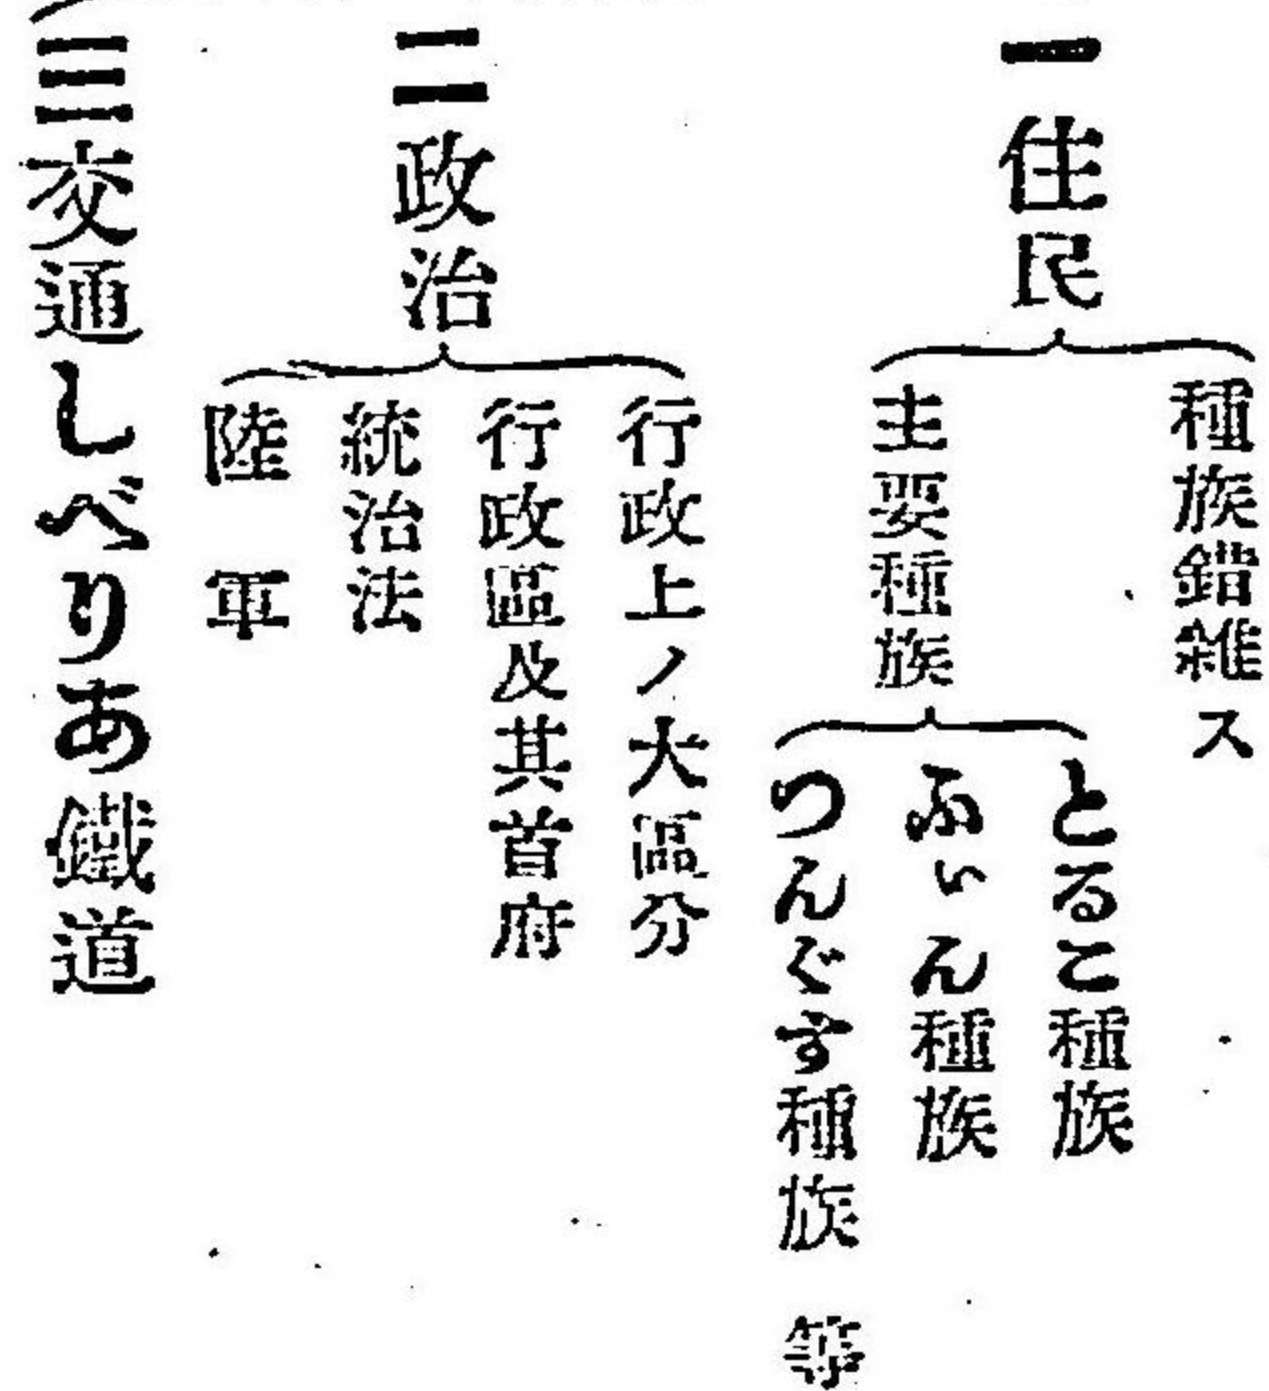 一住民
種族錯雜ス
主要種族
とるこ種族
ふぃん種族
つんぐす種族 等
二政治
行政上ノ大區分
行政區及其首府
統治法
陸軍
三交通しべりあ鐵道